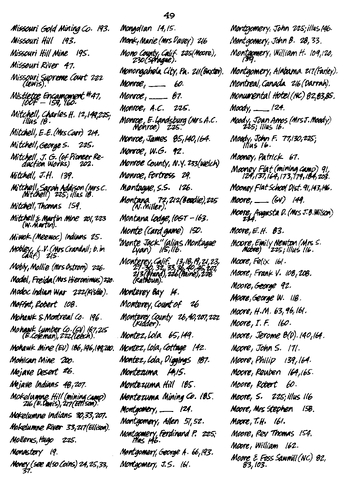 49
Missouri Gold Mining Co. 193.
Missouri Hill 193.
Missouri Hill Mine 195.
Missouri River 47.
Missouri Supreme Court 222
(Lewis).
Mistletoe Encampment #47,
IOOF - 159, 160.
Mitchell, Charles H. 12, 149, 225;
illus 18.
Mitchell, E.E. (Mrs Carr) 214.
Mitchell, George S. 225.
Mitchell, J.G. (of Pioneer Re-
duction Works) 202.
Mitchell, J.H. 139.
Mitchell, Sarah Addison (Mrs C.
Mitchell) 225; illus 18.
Mitchell, Thomas 159.
Mitchell & Martin Mine 201, 223
(W. Martin).
Miwok (Meewoc) Indians 25.
Mobley, L.V. (Mrs Crandall; b. in
Calif) 215.
Moby, Mollie (Mrs Ostrom) 226.
Modoc Indian War 222
Moffat, Robert 108.
Mohawk & Montreal Co. 196.
Mohawk Lumber Co. (GV) 167, 215
(E. Coleman), 222 (Leech).
Mohawk Mine (GV)
Mohican Mine 200.
Mojave Desert 26.
Mojave Indians 48, 207.
Mokelumne Hill (mining camp)
216 (N. Davis), 217 (Ellison).
Mokelumne Indians 30, 33, 207.
Mokelumne River 33, 217 (Ellison).
Mollers, Hugo 225.
Monastery 19.
Money (see also Coins) 24, 25, 33,
37.
Mongolian 14, 15.
Monk, Marie (Mrs Davey) 216
Mono County, Calif. 225 (Moore),
230 (Sprague).
Monongahela City, Pa. 211 (Buxton).
Monroe, ___ 60.
Monroe, ___ 67.
Monroe, A.C. 225.
Monroe, E. Landsburg (Mrs A.C.
Monroe) 225.
Monroe, James 85, 140, 164.
Monroe, W.G. 92.
Monroe County, N.Y. 233 (Welch)
Monroe, Fortress 29.
Montague, S.S. 126.
Montana 72, 212 (Beadle), 225
(A. Miller).
Montana Lodge, IOGT - 163.
Monte (card game) 150.
"Monte Jack" (alias Montague
Lyon) 115, 116.
Monterey, Calif. 13, 18, 19, 21, 23,
Monterey Bay 14.
Monterey, Count of 26
Monterey County 26, 40, 207, 222
(Kidder).
Montez, Lola 65, 149.
Montez, Lola, Cottage 142.
Montez, Lola, Diggings 187.
Montezuma 14, 15.
Montezuma Hill 185.
Montezuma Mining Co. 185.
Montgomery, ___ 124.
Montgomery, Allen 51, 52.
Montgomery, Ferdinand P. 225;
illus 146.
Montgomery, George A. 66, 193.
Montgomery, J.S. 161.
Montgomery, John 225; illus 146.
Montgomery, John B. 28, 33.
Montgomery, William H. 109, 120,
139.
Montgomery, Alabama 217 (Farley).
Montreal, Canada 216 (Darrah).
Monumental Hotel (NC) 82, 83, 85.
Moody, ___ 124.
Moody, Joan Amos (Mrs T. Moody)
225; illus 16.
Moody, John F. 77, 130, 225;
illus 16.
Mooney, Patrick 67.
Mooney Flat (mining camp) 91,
Mooney Flat School Dist. 91, 143, 146.
Moore, ___ (GV) 149.
Moore, Augusta D. (Mrs J.B. Wilson)
234.
Moore, E.H. 83.
Moore, Emily Newton (Mrs S.
Moore) 225; illus 116.
Moore, Felix 161.
Moore, Frank V. 108, 208.
Moore, George 92.
Moore, George W. 118.
Moore, H.M. 63, 96, 161.
Moore, I.F. 160.
Moore, Jerome B (D). 140, 164.
Moore, John S. 171.
Moore, Philip 139, 164.
Moore, Reuben 164, 165.
Moore, Robert 60.
Moore, S. 225; illus 116
Moore, Mrs Stephen 158.
Moore, T.H. 161.
Moore, Rev Thomas 154.
Moore, William 162.
Moore & Foss Sawmill (NC) 82,
83, 103.